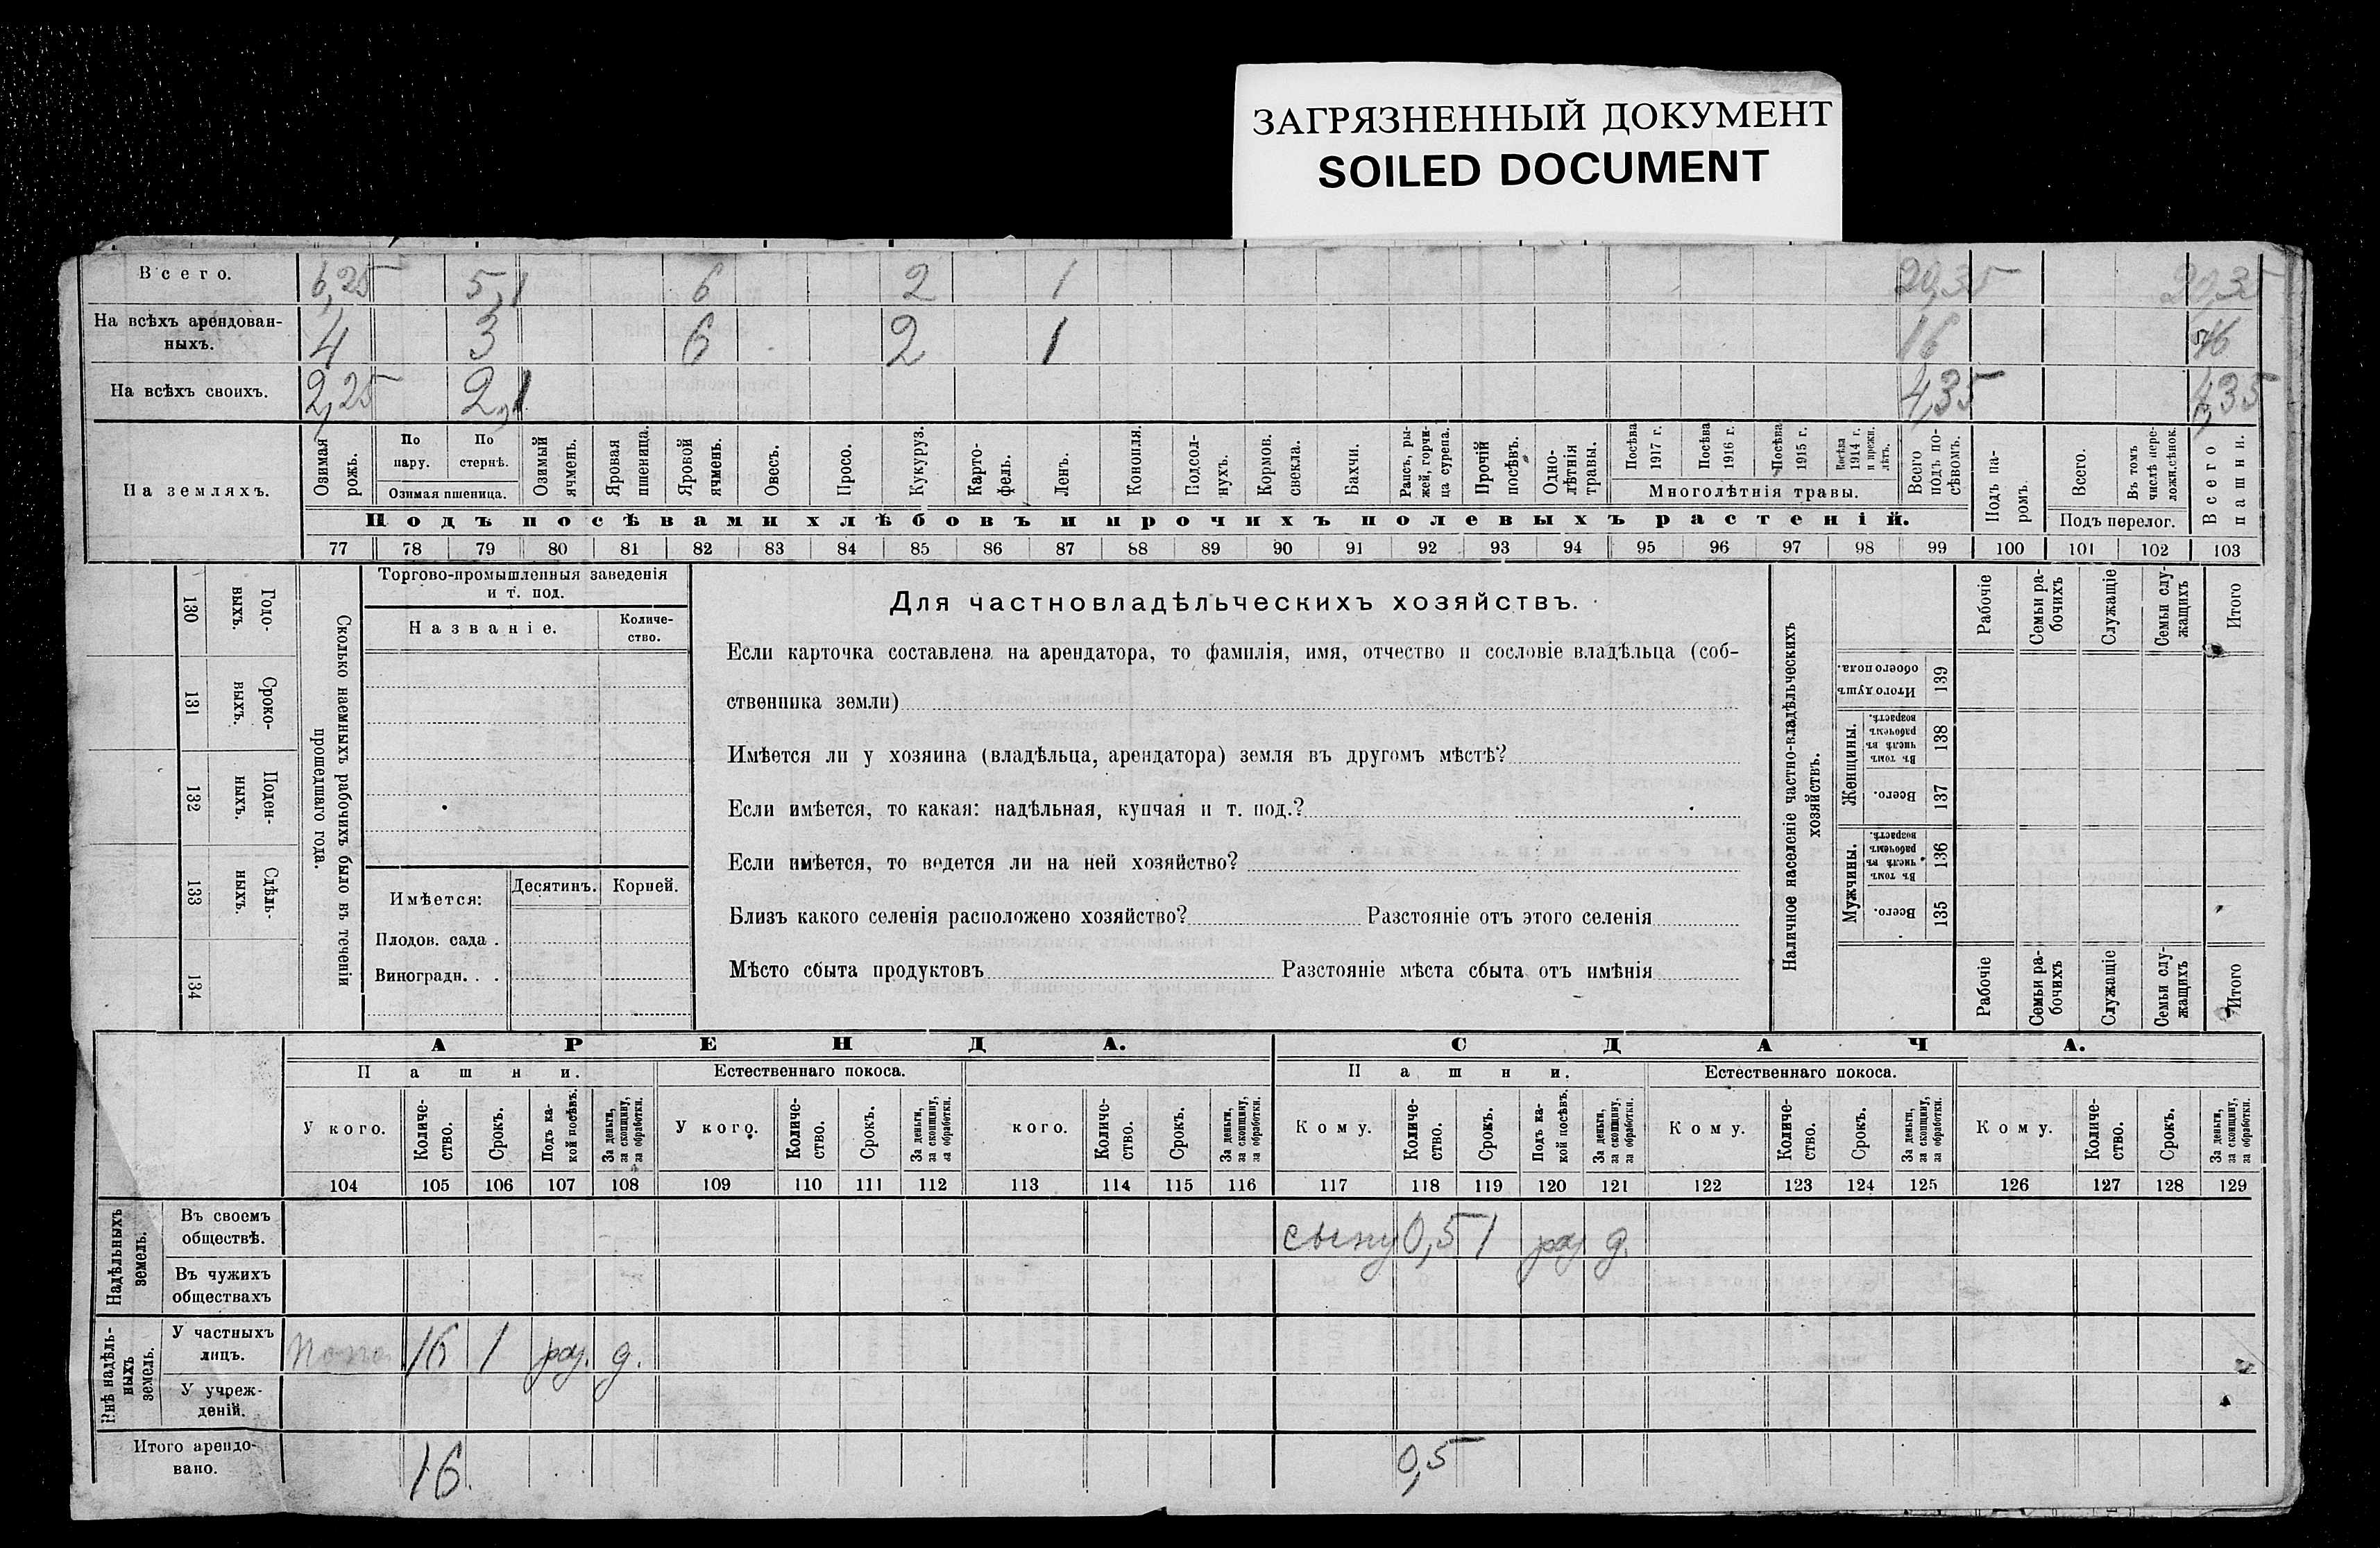 ЗАГРЯЗНЕННЫЙ ДОКУМЕНТ
SOILED DOCUMENT
Всего. 6,25 5,1 6 2 1 20,35 20,35
На всѣхъ арендован-
ныхъ. 4 3 6 2 1 16 16
На всѣхъ своихъ. 2,25 2,1 4,35 4,35
На земляхъ.
Озимая рожь.
По пару.
По стернѣ.
Озимая пшеница.
Озимый ячмень.
Яровая пшеница.
Яровой ячмень.
Овесъ.
Просо.
Кукуруз.
Карто-
фель.
Ленъ.
Конопля.
Подсол-
нухъ.
Кормов. свекла.
Бахчи.
Рапсъ, ры-
жей, горчи-
ца сурепа.
Прочій посѣвъ.
Одно-
лѣтнія травы.
Посѣва 1917 г.
Посѣва 1916 г.
Посѣва 1915 г.
Посѣва 1914 г. и прежн. лѣтъ.
Многолѣтнія травы.
Всего подъ по-
сѣвомъ.
Подъ па-
ромъ.
Всего.
Въ томъ числѣ пере-
ложн.сѣнок.
Подъ перелог.
Всего пашни.
Подъ посѣвами хлѣбовъ и прочихъ полевыхъ растеній.
77 78 79 80 81 82 83 84 85 86 87 88 89 90 91 92 93 94 95 96 97 98 99 100 101 102 103
130 Годо-
выхъ.
131 Сроко-
выхъ.
132 Поден-
ныхъ.
133 Сдѣль-
ныхъ.
134
Сколько наемныхъ рабочихъ было въ теченіи
прошедшаго года.
Торгово-промышленныя заведенія
и т. под.
Названіе.
Количе-
ство.
Имѣется:
Десятинъ.
Корней.
Плодов. сада .
Виноградн. . .
Для частновладѣльческихъ хозяйствъ.
Если карточка составлена на арендатора, то фамилія, имя, отчество и сословіе владѣльца (соб-
ственника земли)
Имѣется ли у хозяина (владѣльца, арендатора) земля въ другомъ мѣстѣ?
Если имѣется, то какая: надѣльная, купчая и т. под.?
Если имѣется, то ведется ли на ней хозяйство?
Близъ какого селенія расположено хозяйство? Разстояніе отъ этого селенія
Мѣсто сбыта продуктовъ Разстояніе мѣста сбыта отъ имѣнія
Наличное населеніе частно-владѣльческихъ
хозяйствъ.
Рабочіе
Семьи ра-
бочихъ
Служащіе
Семьи слу-
жащихъ
Итого
Итого душъ обоего пола. 139
Женщины.
Въ томъ числѣ въ рабочемъ возрастѣ. 138
Всего. 137
Мужчины.
Въ томъ числѣ въ рабочемъ возрастѣ. 136
Всего. 135
Рабочіе
Семьи ра-
бочихъ
Служащіе
Семьи слу-
жащихъ
Итого
АРЕНДА. СДАЧА.
Пашни. Естественнаго покоса. Пашни. Естественнаго покоса.
У кого.
Количе-
ство.
Срокъ.
Подъ ка-
кой посѣвъ.
За деньги,
за скопщину,
за обработки.
У кого.
Количе-
ство.
Срокъ.
За деньги,
за скопщину,
за обработки.
кого.
Количе-
ство.
Срокъ.
За деньги,
за скопщину,
за обработки.
Кому.
Количе-
ство.
Срокъ.
Подъ ка-
кой посѣвъ.
За деньги,
за скопщину,
за обработки.
Кому.
Количе-
ство.
Срокъ.
За деньги,
за скопщину,
за обработки.
Кому.
Количе-
ство.
Срокъ.
За деньги,
за скопщину,
за обработки.
104 105 106 107 108 109 110 111 112 113 114 115 116 117 118 119 120 121 122 123 124 125 126 127 128 129
Надѣльныхъ
земель.
Въ своемъ
обществѣ. сыну 0,5 1 роз д.
Въ чужихъ
обществахъ
Внѣ надѣль-
ныхъ
земель.
У частныхъ
лицъ. 16 1 роз. д.
У учреж-
деній.
Итого арендо-
вано. 16. 0,5